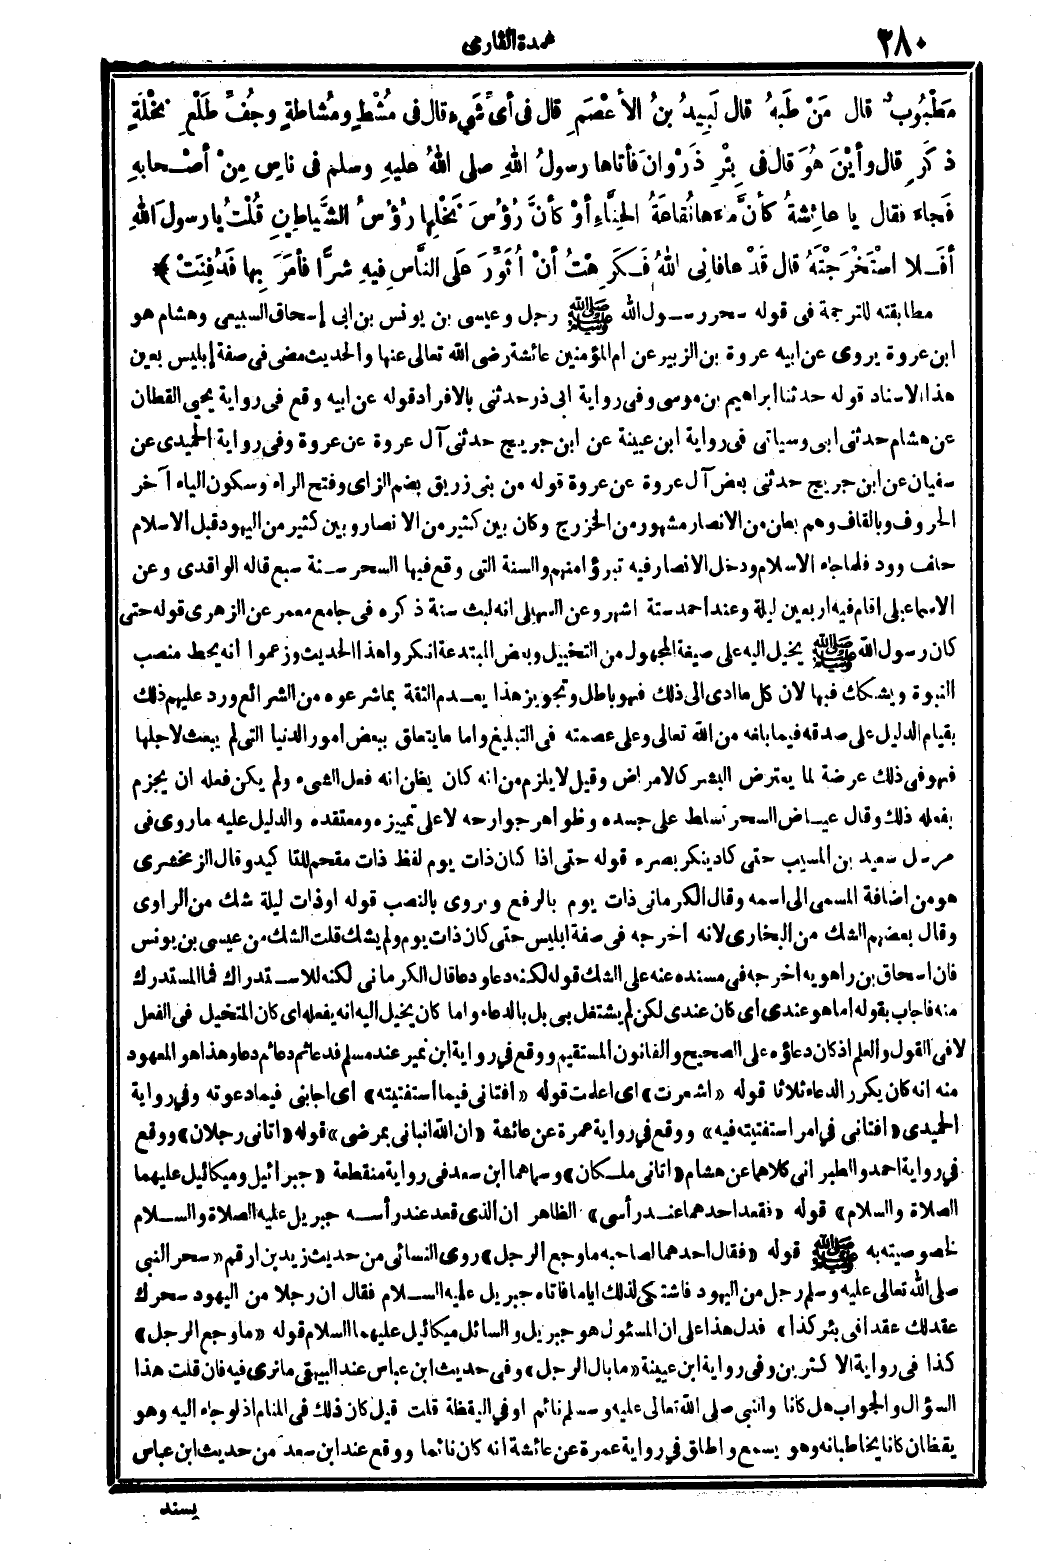 ٢٨٠
عمدة القاري
مَطْبُوبٌ قال مَنْ طَبَّهُ قال لَبِيدُ بنُ الأعْصَمِ قال في أيِّ شَيْءٍ قال في مُشْطٍ ومُشاطةٍ وجُفِّ طَلْعِ نَخْلَةٍ
ذَكَرٍ قال وأيْنَ هُوَ قال في بِئْرِ ذَرْوانَ فأتاها رسولُ اللهِ صلى اللهُ عليهِ وسلم في ناسٍ مِنْ أصْحابِهِ
فَجاءَ فقال يا عائِشةُ كأنَّ مَاءَها نُقاعَةُ الحِنَّاءِ أوْ كأنَّ رُؤُسَ نَخْلِها رُؤُسُ الشَّياطِينِ قُلْتُ يا رسولَ اللهِ
أفَلا اسْتَخْرَجْتَهُ قال قَدْ عافانِي اللهُ فَكَرِهْتُ أنْ أُثَوِّرَ عَلَى النَّاسِ فِيهِ شَرًّا فأمَرَ بِها فَدُفِنَتْ ﴾
مطابقته للترجمة فى قوله سحر رسول الله ﷺ رجل وعيسى بن يونس بن ابى إسحاق السبيعى وهشام هو
ابن عروة يروى عن ابيه عروة بن الزبير عن ام المؤمنين عائشة رضى الله تعالى عنها والحديث مضى فى صفة إبليس بعين
هذا الاسناد قوله حدثنا ابراهيم بن موسى وفى رواية ابى ذر حدثنى بالافراد قوله عن ابيه وقع فى رواية يحيى القطان
عن هشام حدثنى ابى وسياتى فى رواية ابن عيينة عن ابن جريج حدثنى آل عروة عن عروة وفى رواية الحميدى عن
سفيان عن ابن جريج حدثنى بعض آل عروة عن عروة قوله من بنى زريق بضم الزاى وفتح الراء وسكون الياء آخر
الحروف وبالقاف وهم بطن من الانصار مشهور من الخزرج وكان بين كثير من الانصار وبين كثير من اليهود قبل الاسلام
حلف وود فلما جاء الاسلام ودخل الانصار فيه تبرؤا منهم والسنة التى وقع فيها السحر سنة سبع قاله الواقدى وعن
الاسماعيلى اقام فيه اربعين ليلة وعند احمد ستة اشهر وعن السهيلى انه لبث سنة ذكره فى جامع معمر عن الزهرى قوله حتى
كان رسول الله ﷺ يخيل اليه على صيغة المجهول من التخييل وبعض المبتدعة انكروا هذا الحديث وزعموا انه يحط منصب
النبوة ويشكك فيها لان كل ما ادى الى ذلك فهو باطل وتجويز هذا يعدم الثقة بما شرعوه من الشرائع ورد عليهم ذلك
بقيام الدليل على صدقه فيما بلغه من الله تعالى وعلى عصمته فى التبليغ واما ما يتعلق ببعض امور الدنيا التى لم يبعث لاجلها
فهو فى ذلك عرضة لما يعترض البشر كالامراض وقيل لا يلزم من انه كان يظن انه فعل الشىء ولم يكن فعله ان يجزم
بفعله ذلك وقال عياض السحر تسلط على جسده وظواهر جوارحه لا على تمييزه ومعتقده والدليل عليه ما روى فى
مرسل سعيد بن المسيب حتى كاد ينكر بصره قوله حتى اذا كان ذات يوم لفظ ذات مقحم للتا كيد وقال الزمخشرى
هو من اضافة المسمى الى اسمه وقال الكرمانى ذات يوم بالرفع ويروى بالنصب قوله او ذات ليلة شك من الراوى
وقال بعضهم الشك من البخارى لانه اخرجه فى صفة ابليس حتى كان ذات يوم ولم يشك قلت الشك من عيسى بن يونس
فان اسحاق بن راهويه اخرجه فى مسنده عنه على الشك قوله لكنه دعا ودعا قال الكرمانى لكنه للاستدراك فما المستدرك
منه فاجاب بقوله اما هو عندى اى كان عندى لكن لم يشتغل بى بل بالدعاء واما كان يخيل اليه انه يفعله اى كان المتخيل فى الفعل
لا فى القول والعلم اذ كان دعاؤه على الصحيح والقانون المستقيم ووقع في رواية ابن نمير عند مسلم فدعا ثم دعا ثم دعا وهذا هو المعهود
منه انه كان يكرر الدعاء ثلاثا قوله «اشعرت» اى اعلمت قوله «افتانى فيما استفتيته» اى اجابنى فيما دعوته وفي رواية
الحميدى «افتانى في امر استفتيته فيه» ووقع في رواية عمرة عن عائشة «ان الله انبانى بمرضى» قوله «اتانى رجلان» ووقع
في رواية احمد والطبرانى كلاهما عن هشام «اتانى ملكان» وسماهما ابن سعد فى رواية منقطعة «جبرائيل وميكائيل عليهما
الصلاة والسلام» قوله «فقعد احدهما عند رأسى» الظاهر ان الذى قعد عند رأسه جبريل عليه الصلاة والسلام
لخصوصيته به ﷺ قوله «فقال احدهما لصاحبه ما وجع الرجل» روى النسائى من حديث زيد بن ارقم «سحر النبى
صلى الله تعالى عليه وسلم رجل من اليهود فاشتكى لذلك اياما فاتاه جبريل عليه السلام فقال ان رجلا من اليهود سحرك
عقد لك عقدا فى بئر كذا» فدل هذا على ان المسئول هو جبريل والسائل ميكائيل عليهما السلام قوله «ما وجع الرجل»
كذا فى رواية الاكثرين وفى رواية ابن عيينة «ما بال الرجل» وفى حديث ابن عباس عند البيهقى ما ترى فيه فان قلت هذا
السؤال والجواب هل كانا والنبى صلى الله تعالى عليه وسلم نائم او في اليقظة قلت قيل كان ذلك فى المنام اذ لو جاء اليه وهو
يقظان كانا يخاطبانه وهو يسمع واطلق في رواية عمرة عن عائشة انه كان نائما ووقع عند ابن سعد من حديث ابن عباس
بسند